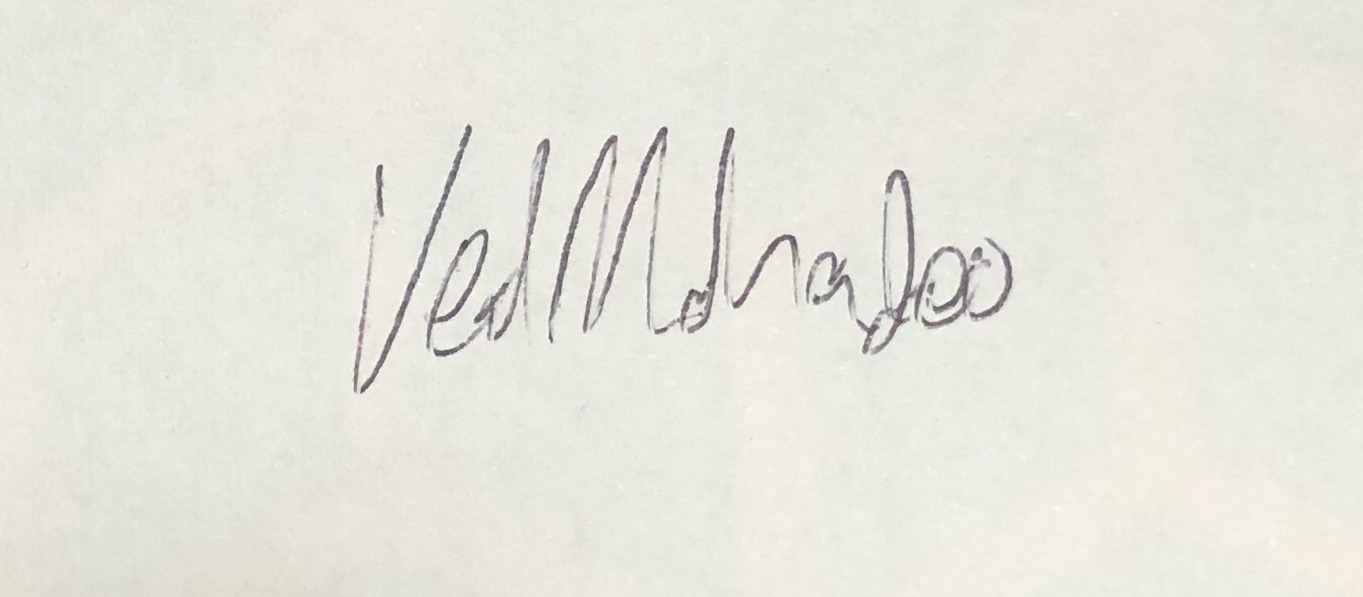 Ved Mahadeo